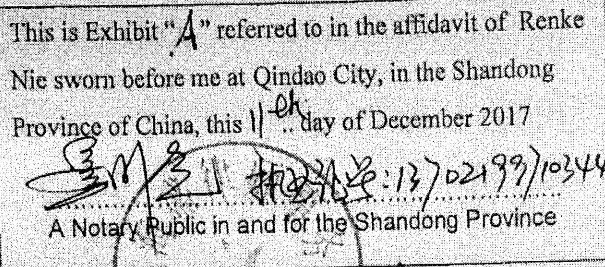 This is Exhibit “A” referred to in the affidavit of Renke
Nie sworn before me at Qindao City, in the Shandong
Province of China, this 11th day of December 2017
执业证号:13702199710344
A Notary Public in and for the Shandong Province